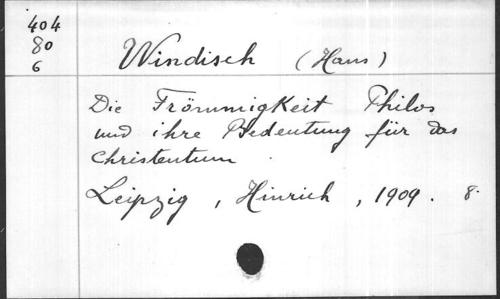 404
80
6
Windisch (Hans)
Die Frömmigkeit Philos
und ihre Bedeutung für das
Christentum
Leipzig, Hinrich, 1909. 8.